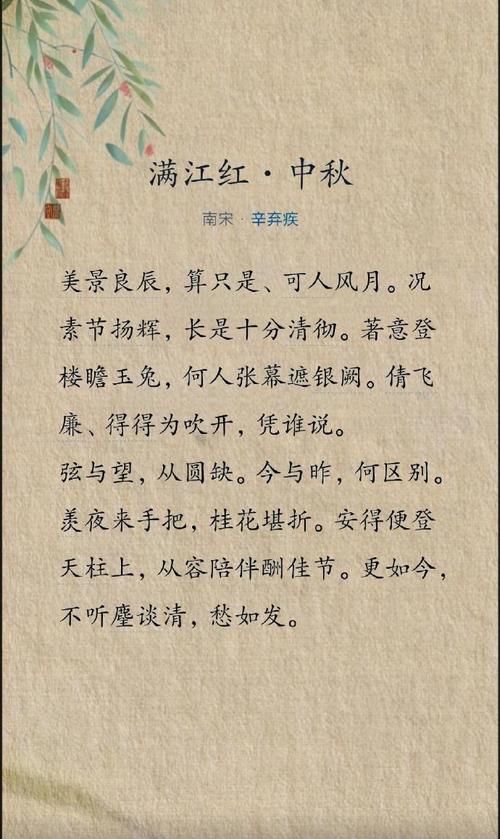 满江红·中秋
南宋·辛弃疾
美景良辰，算只是、可人风月。况
素节扬辉，长是十分清彻。著意登
楼瞻玉兔，何人张幕遮银阙。倩飞
廉、得得为吹开，凭谁说。
弦与望，从圆缺。今与昨，何区别。
羡夜来手把，桂花堪折。安得便登
天柱上，从容陪伴酬佳节。更如今，
不听麈谈清，愁如发。